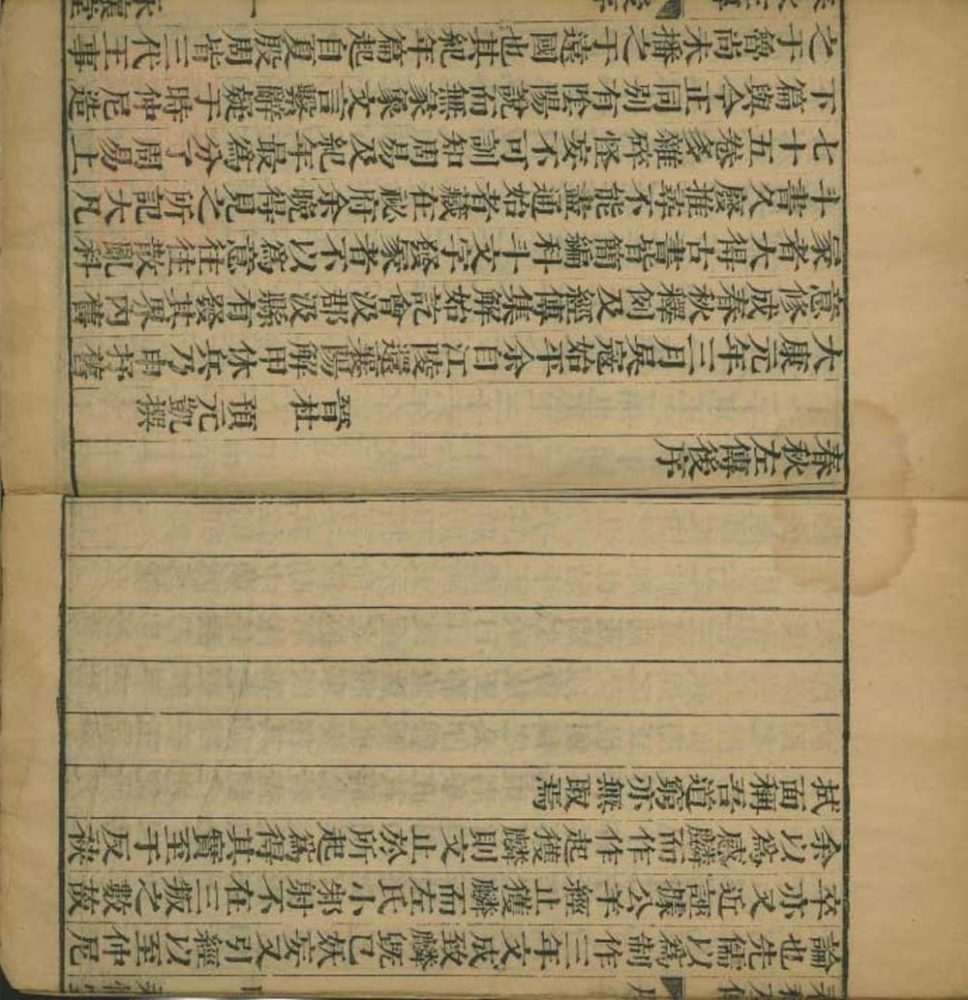 論也先儒以爲制作三年文成致麟既已妖妄又引經以至仲尼
卒亦又近誣據公羊經止獲麟而左氏小邾射不在三叛之數故
余以爲感麟而作作起獲麟則文止於所起爲得其實至于反袂
拭面稱吾道窮亦無取焉
春秋左傳後序
晉杜預元凱撰
大康元年三月吳寇始平余自江陵還襄陽解甲休兵乃申抒舊
意修成春秋釋例及經傳集解始訖會汲郡汲縣有發其界內舊
冢者大得古書皆簡編科斗文字發冢者不以爲意往往散亂科
斗書久廢推尋不能盡通始者藏在祕府余晚得見之所記大凡
七十五卷多雜碎怪妄不可訓知周易及紀年最爲分了周易上
下篇與今正同別有陰陽說而無彖象文言繫辭疑于時仲尼造
之于魯尚未播之于遠國也其紀年篇起自夏殷周皆三代王事